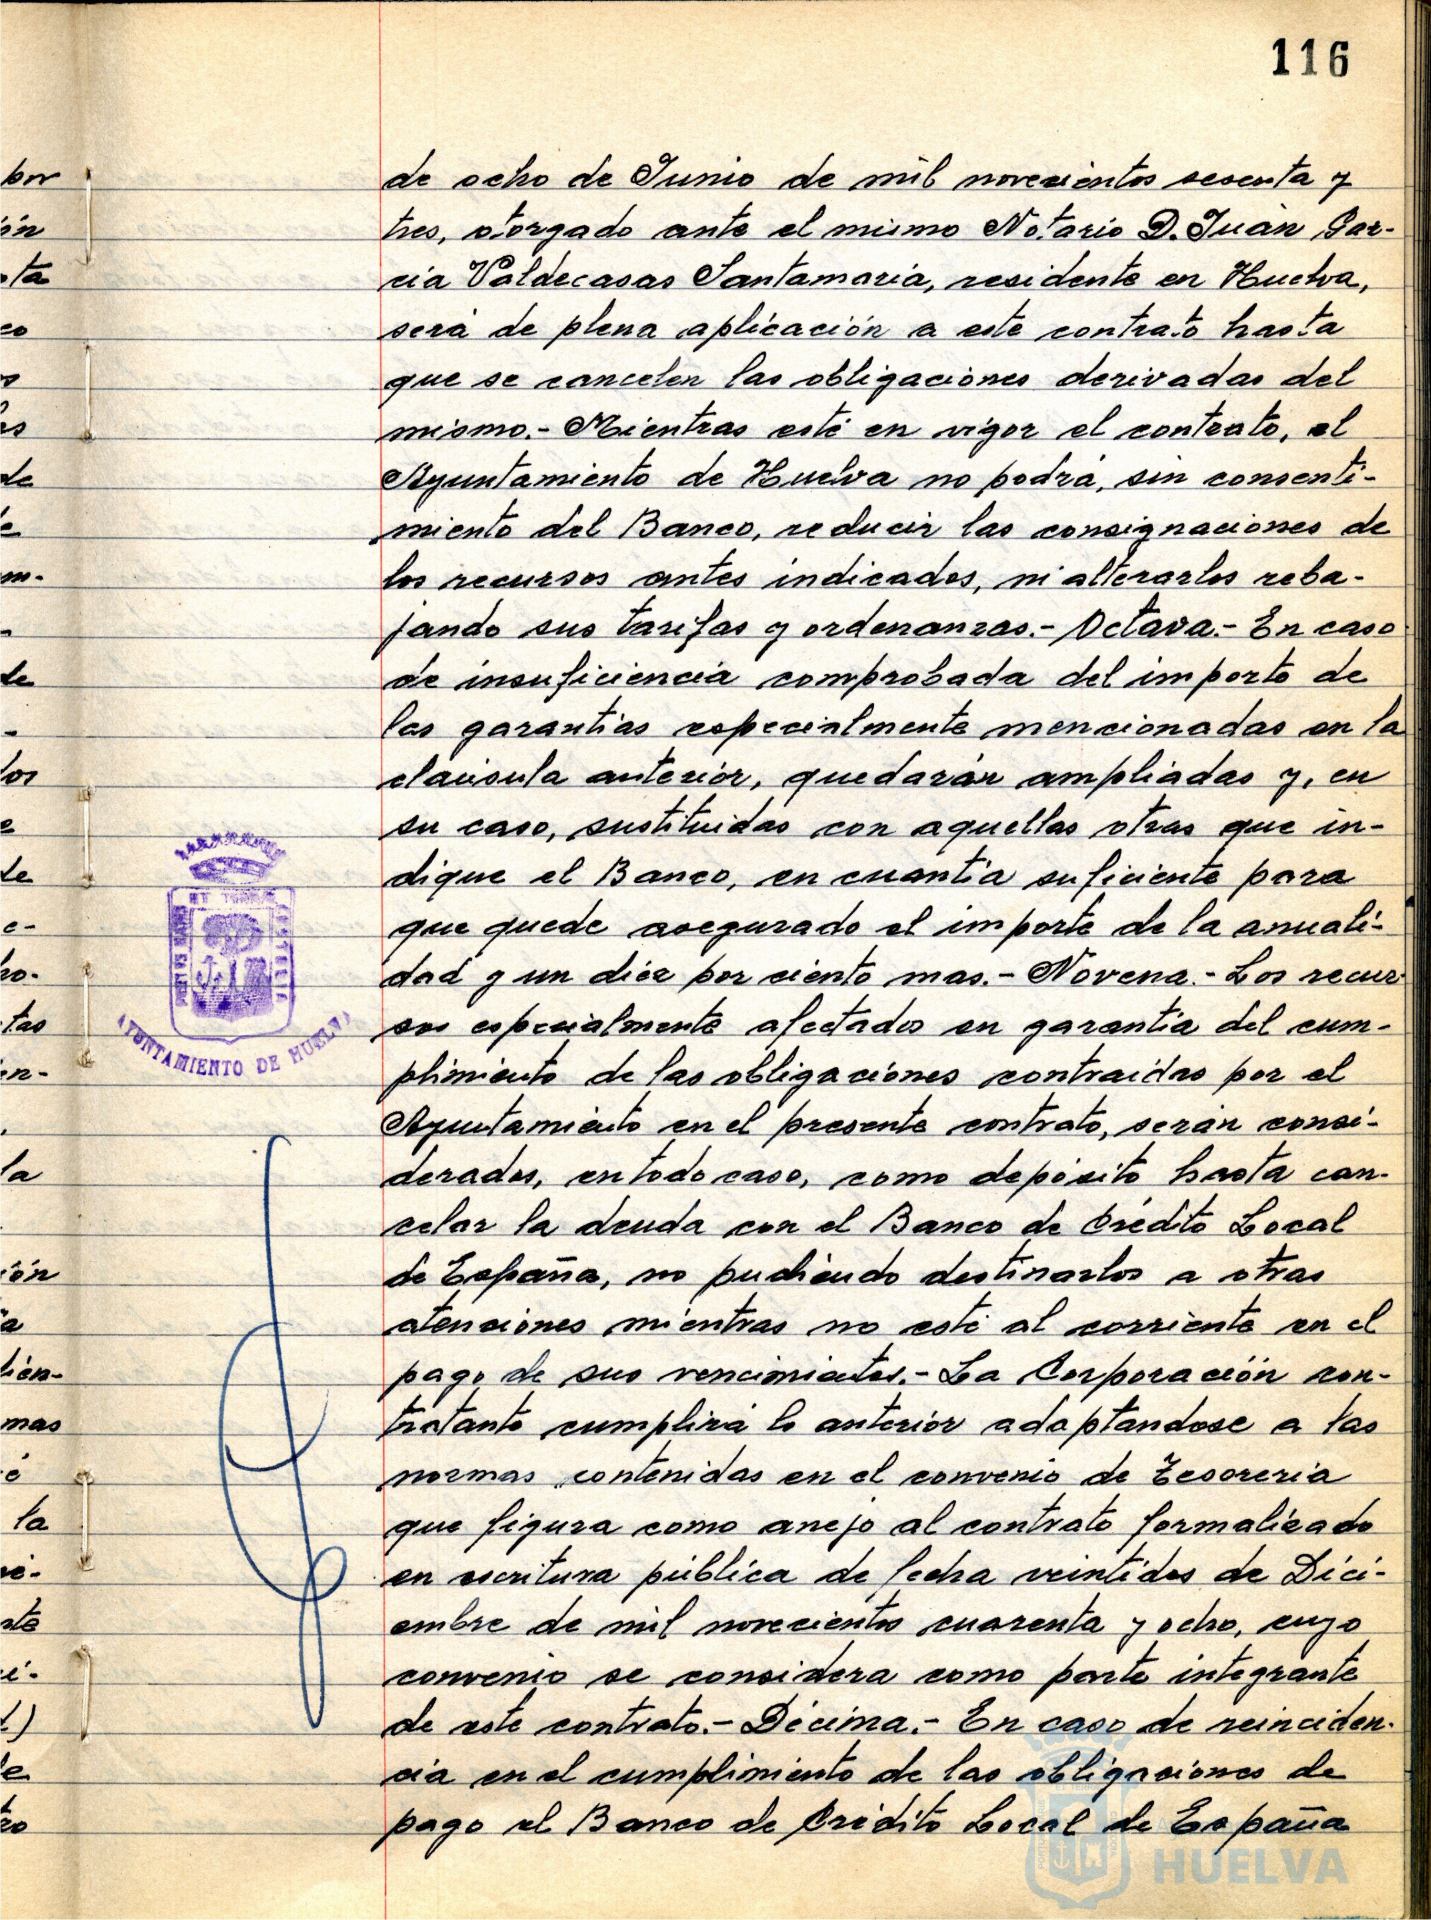 116
de ocho de Junio de mil novecientos sesenta y
tres, otorgado ante el mismo Notario D. Juan Gar-
cia Valdecasas Santamaria, residente en Huelva,
será de plena aplicación a este contrato hasta
que se cancelen las obligaciones derivadas del
mismo.- Mientras esté en vigor el contrato, el
Ayuntamiento de Huelva no podrá, sin consenti-
miento del Banco, reducir las consignaciones de
los recursos antes indicados, ni alterarlos reba-
jando sus tarifas y ordenanzas.- Octava.- En caso
de insuficiencia comprobada del importe de
las garantías especialmente mencionadas en la
claúsula anterior, quedarán ampliadas y, en
su caso, sustituidas con aquellas otras que in-
dique el Banco, en cuantía suficiente para
que quede asegurado el importe de la anuali-
dad y un diez por ciento mas.- Novena.- Los recur-
sos especialmente afectados en garantía del cum-
plimiento de las obligaciones contraidas por el
Ayuntamiento en el presente contrato, serán consi-
derados, en todo caso, como depósito hasta can-
celar la deuda con el Banco de Crédito Local
de España, no pudiendo destinarlos a otras
atenciones mientras no esté al corriente en el
pago de sus vencimientos.- La Corporación con-
tratante cumplirá lo anterior adaptandose a las
normas contenidas en el convenio de Tesoreria
que figura como anejo al contrato formalizado
en escritura pública de fecha veintidos de Dici-
embre de mil novecientos cuarenta y ocho, cuyo
convenio se considera como parte integrante
de este contrato.- Décima.- En caso de reinciden-
cia en el cumplimiento de las obligaciones de
pago el Banco de Crédito Local de España
por
ón
ota
co
os
as
de
m-
de
-
los
e
de
e-
ho-
tas
en-
la
ión
a
bien-
mas
é
la
nte
ci-
AYUNTAMIENTO DE HUELVA
HUELVA